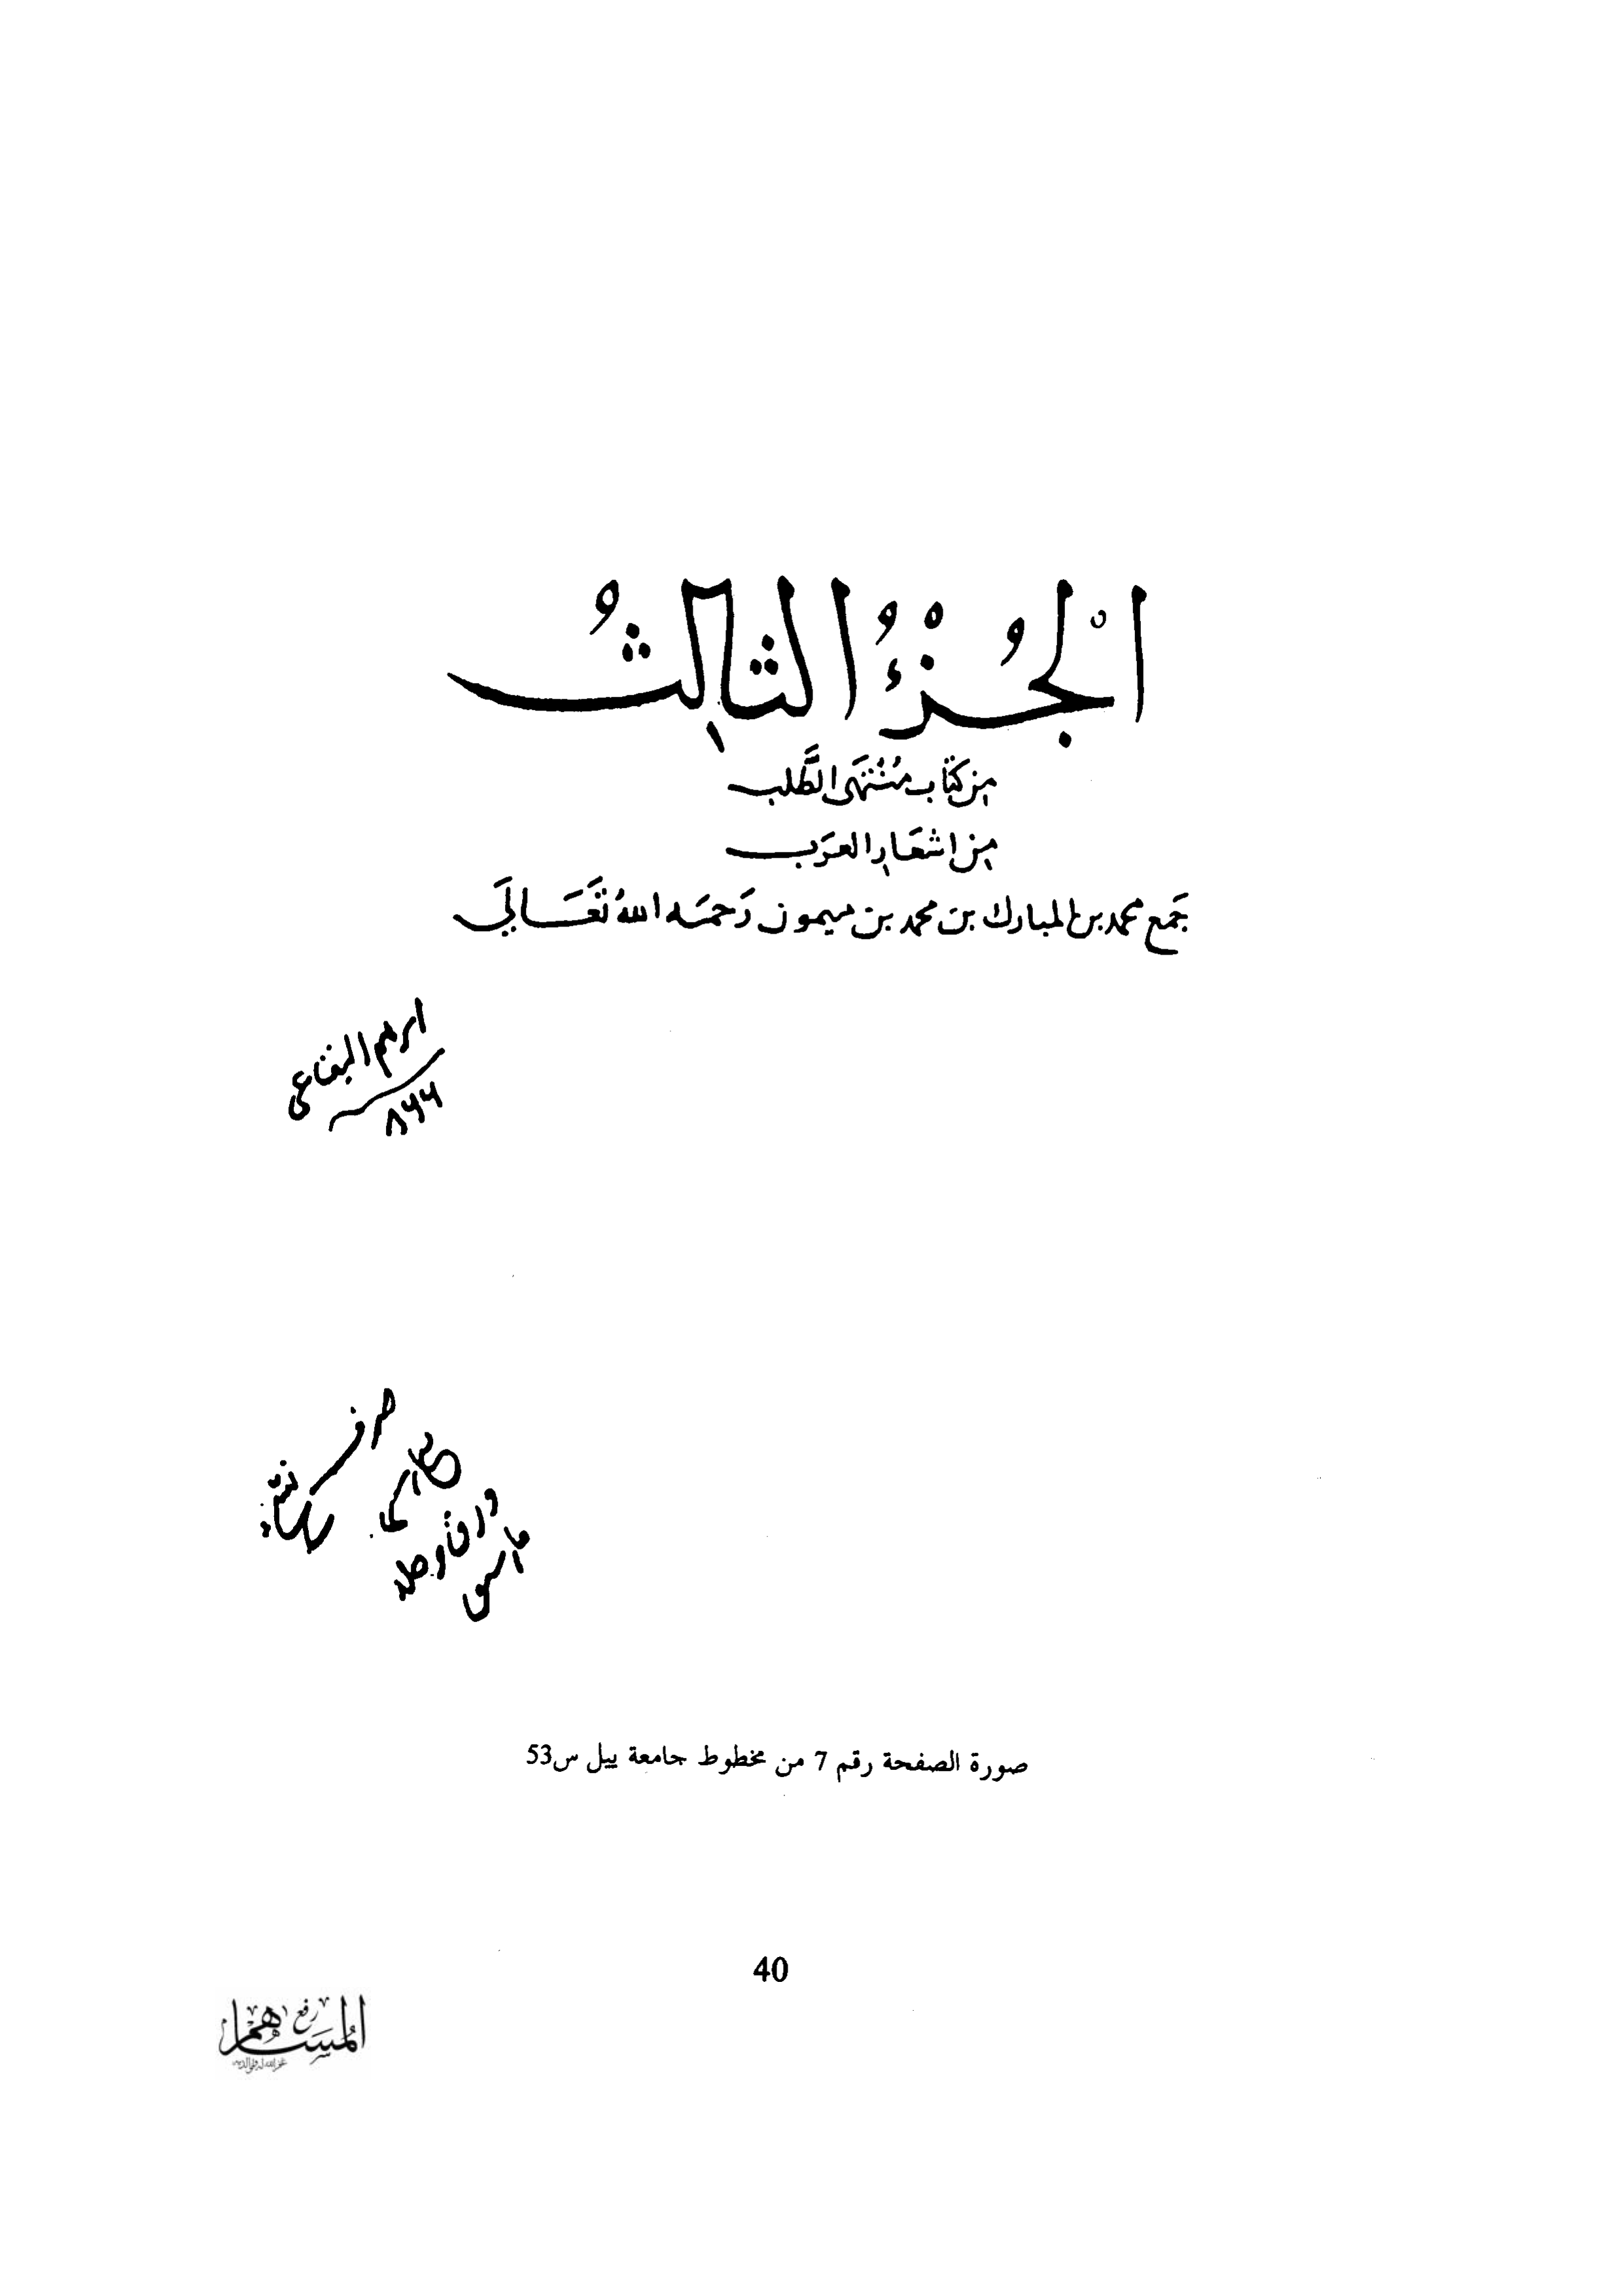 الْجُزْءُ الثالِثُ
مِن كتَاب مُنْتَهَى الطَّلب
مِن اشعَارِ العرَب
جَمع محمد بن المبارك بن محمد بن ميمون رَحمَه اللهُ تَعَالَى
ابرهيم البقاعي
٨٤٤
صورة الصفحة رقم 7 من مخطوط جامعة ييل س53
40
رفع
المساهم
غفر الله له ولوالديه